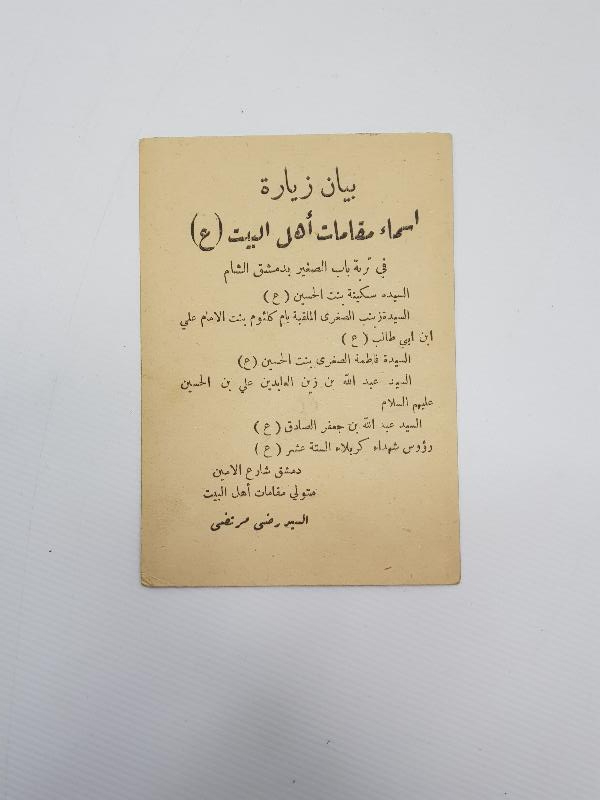 بيان زيارة
اسماء مقامات أهل البيت (ع)
في تربة باب الصغير بدمشق الشام
السيده سكينة بنت الحسين (ع)
السيدة زينب الصغرى الملقبة بام كلثوم بنت الامام علي
ابن ابي طالب (ع)
السيدة فاطمة الصغرى بنت الحسين (ع)
السيد عبد الله بن زين العابدين علي بن الحسين
عليهم السلام
السيد عبد الله بن جعفر الصادق (ع)
رؤوس شهداء كربلاء الستة عشر (ع)
دمشق شارع الامين
متولي مقامات أهل البيت
السيد رضى مرتضى